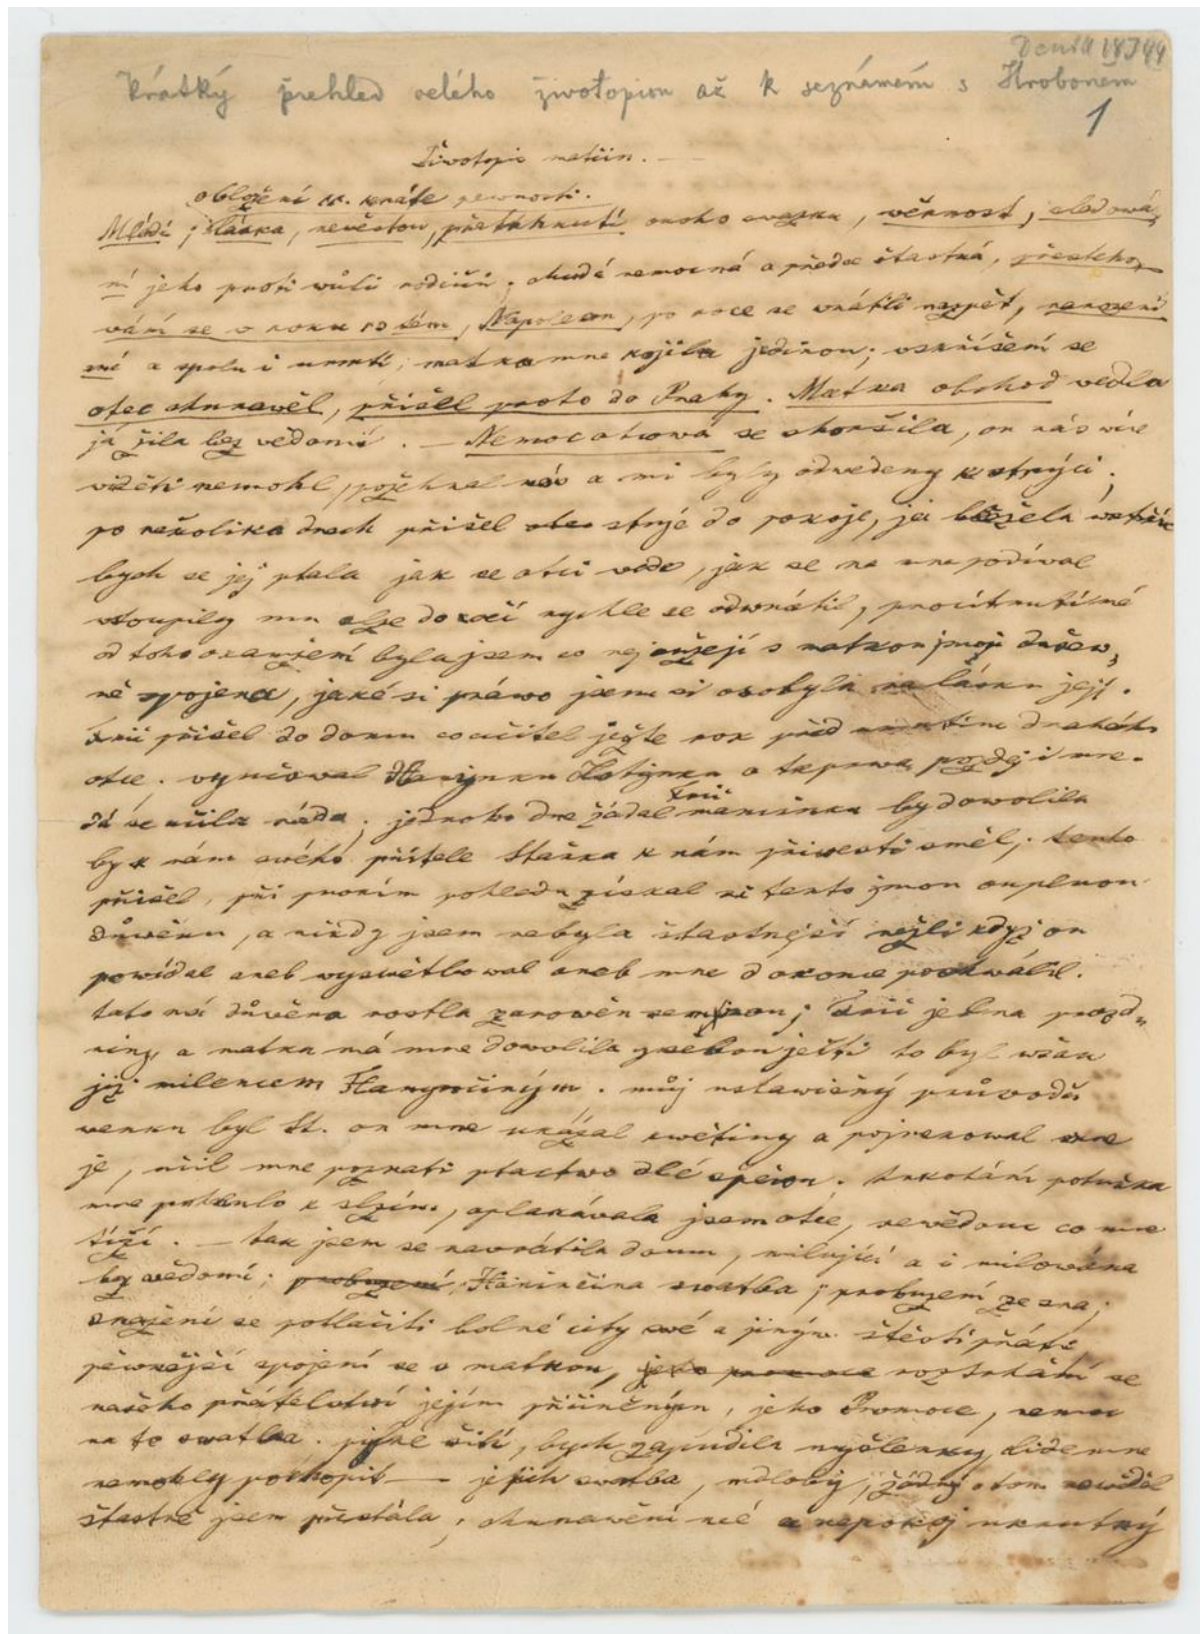 Deník 1844
Krátký přehled celého životopisu až k seznámení s Hroboněm
1
Životopis matčin. —
obležení kr. hradecké pewnosti.
Mládí, láska, newěstou, přetrhnutí onoho swazku, wěrnost, sledowá-
ní jeho proti wůli rodičů, chudá nemocná a předce šťastná, přestěho-
wání se w roku 13tém, Napoleon, po roce se wrátili nazpět, narození
mé a spolu i umrtí, matka mne kojila jedinou; wzkříšení se
otec churawěl, přišel proto do Prahy. Matka obchod wedla
já žila bez wědomí. — Nemoc otcowa se zhoršila, on nás wíce
widěti nemohl, požehnal nás a mi byly odwedeny k strýci,
po několika dnech přišel strýc do pokoje, já běžela wstříc
bych se jej ptala jak se otci wede, jak se na mne podíwal
wstoupily mu slze do očí rychle se odwrátil, procítnutí mé
od toho okamžení byla jsem co nejoužeji s matkou mojí dušew-
ně spojena, jakési práwo jsem si osobyla na lásku její.
přišel do domu co učitel ještě rok před umrtím drahého
otce. wyučowal Hanynku Lotynku a teprwa pozdeji mne.
Já se učila ráda; jednoho dne žádal maminku by dowolila
by k nám swého přítele Staňka k nám přiwesti směl; tento
přišel, při prwním pohledu získal si tento mou ouplnou
důwěru, a nikdy jsem nebyla šťastnější nežli když on
powídal aneb wyswětlowal aneb mne dokonce pochwálil.
tato má důwěra rostla zarowěň se mnou; jel na prázd-
niny a matka má mne dowolila s ještě to byl wšak
již milencem Hanynčiným. můj ustawičný průwodčí
wenku byl St. on mne ukázal kwětiny a pojmenowal mne
je, učil mne poznati ptactwo dlé zpěwu. šukotání potůčka
mne pohnulo k slzím, oplakáwala jsem otce, newědouc co mne
tíží. — tak jsem se nawrátila domu, milující a i milowána
bez wědomí; probuzení, Haninčina swatba; probuzení ze sna;
snažení se potlačiti bolné city swé a jiným štěstí přáti
pewnější spojení se s matkou, jeho promoce roztrhání se
našeho přátelstwí jejím přičiněným, jeho Promoce, nemoc
na to swatba. pilné šití, bych zapudila myšlenky, lidé mne
nemohly pochopit — jejich swatba, mdloby, žádný o tom newěděl
šťastně jsem přestála, churawění mé a nepokoj ukrutný